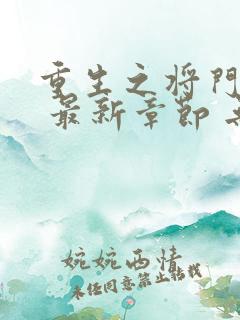 重生之将门
最新章节
婉婉西情
未经同意禁止转载